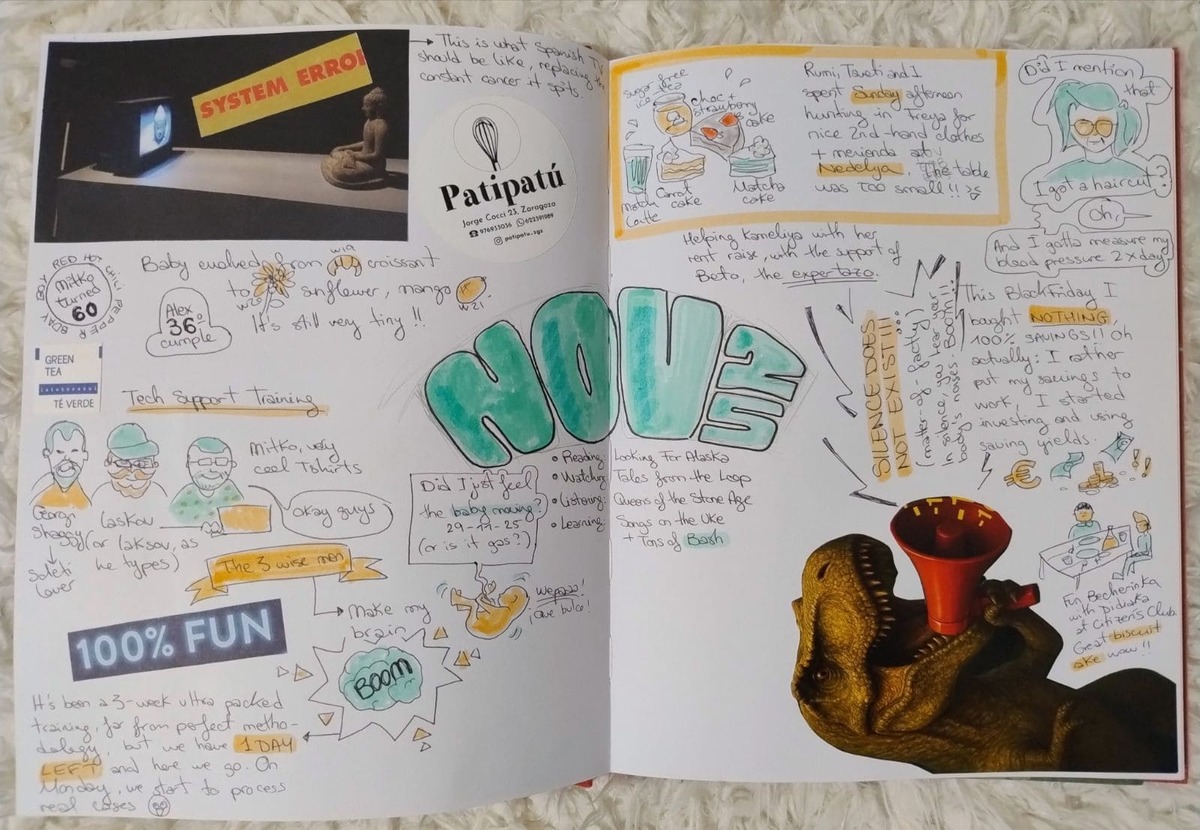 SYSTEM ERROR
→ This is what Spanish
should be like, replacing the
constant cancer it spits.
Patipatú
Jorge Cocci 23, Zaragoza
976935036 622391989
patipatu_zgz
RED HOT CHILI PEPPER BDAY BOY
Mitko
turned
60
Baby evolved from croissant
w19
to sunflower, mango
w20
w21
It's still very tiny!!
Alex
36º
cumple
GREEN
TEA
TÉ VERDE
Tech Support Training
Mitko, very
cool Tshirts
Okay guys
Georgi
Shaggy
soleti
lover
Laskov
(or laksov, as
he types)
The 3 wise men
100% FUN
Make my
brain
BOOM
It's been a 3-week ultra packed
training, far from perfect metho-
dology, but we have 1 DAY
LEFT and here we go. On
Monday, we start to process
real cases
NOV
Did I just feel
the baby moving?
29-11-25
(or is it gas?)
• Reading: Looking For Alaska
• Watching: Tales from the Loop
• Listening: Queens of the Stone Age
• Learning: Songs on the Uke
+ Tons of Bash
sugar free
choc +
strawberry
cake
Matcha
Latte
Carrot
cake
Matcha
cake
Rumi, Tsveti and I
spent Sunday afternoon
hunting in Treya for
nice 2nd-hand clothes
+ merienda at
Nedelya. The table
was TOO small!!
Did I mention
that
I got a haircut?
Oh,
And I gotta measure my
blood pressure 2 x day
Helping Kameliya with her
rent raise, with the support of
Boto, the expertazo.
SILENCE DOES
NOT EXIST!!!
(matter-of-factly)
In silence, you hear your
body's noises. Boom!!
This BlackFriday I
bought NOTHING,
100% SAVINGS!! Oh
actually: I rather
put my savings to
work, I started
investing and using
saving yields.
€
Fun Becherinka
with
at Citizen's Club.
Great biscuit
cake wow!!